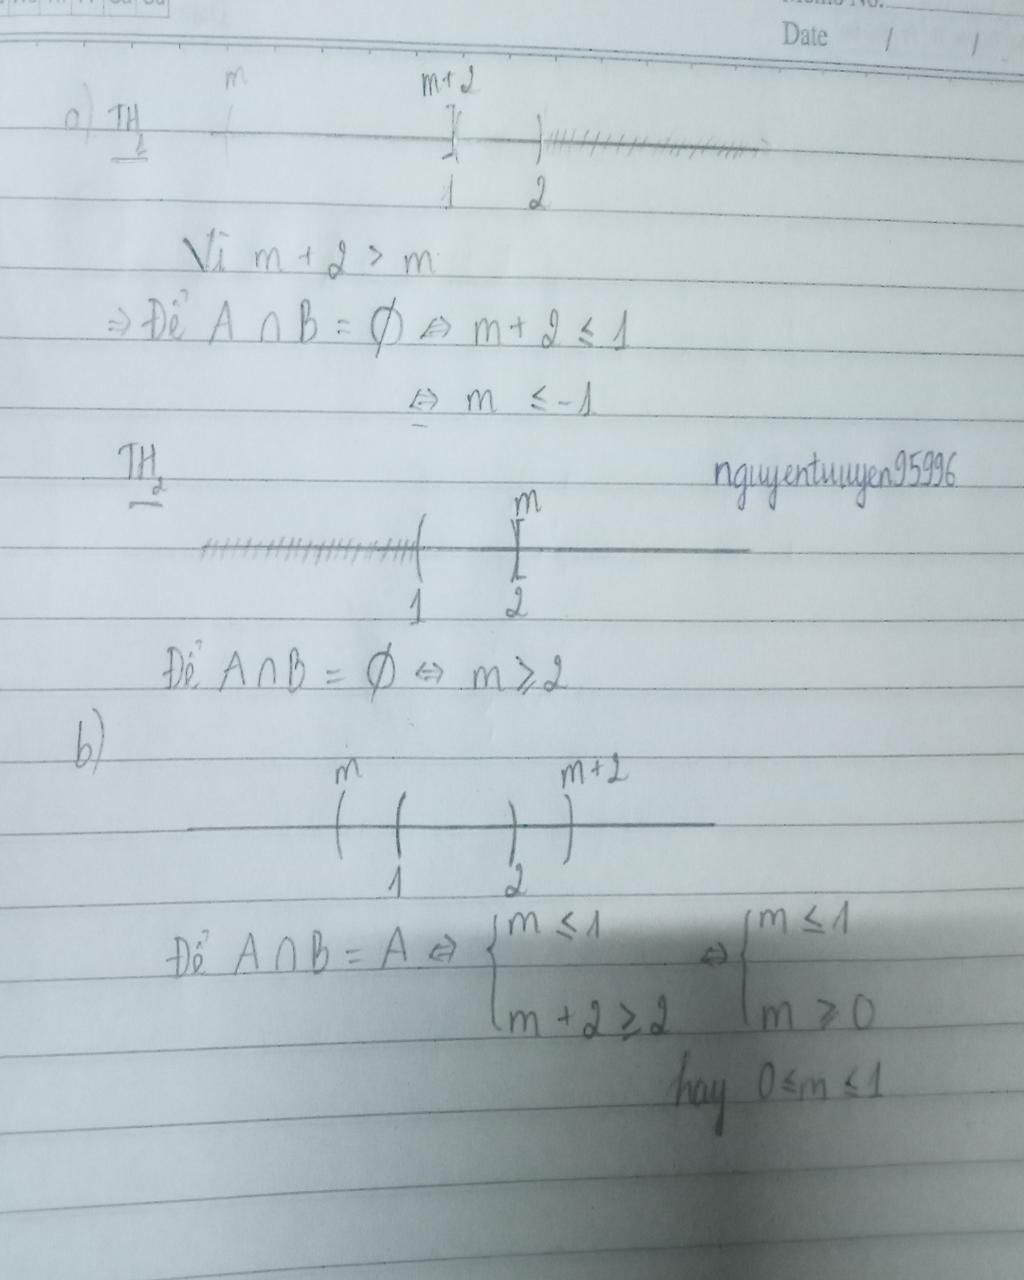 Date / /
m m+2
a) TH1
1 2
Vì m + 2 > m
⇒ Để A ∩ B = ∅ ⇔ m + 2 ≤ 1
⇔ m ≤ -1
TH2
nguyentuuyen95996
m
1 2
Để A ∩ B = ∅ ⇔ m ≥ 2
b)
m m+2
1 2
Để A ∩ B = A ⇔ { m ≤ 1 ⇔ { m ≤ 1
m + 2 ≥ 2 m ≥ 0
hay 0 ≤ m ≤ 1